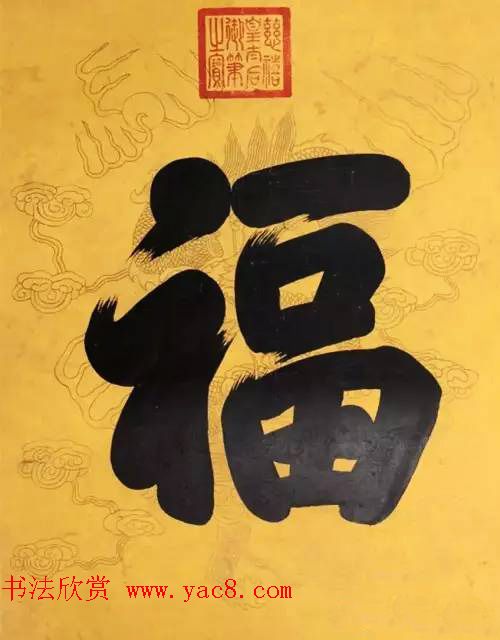 慈禧皇太后御筆之寶
福
书法欣赏 www.yac8.com